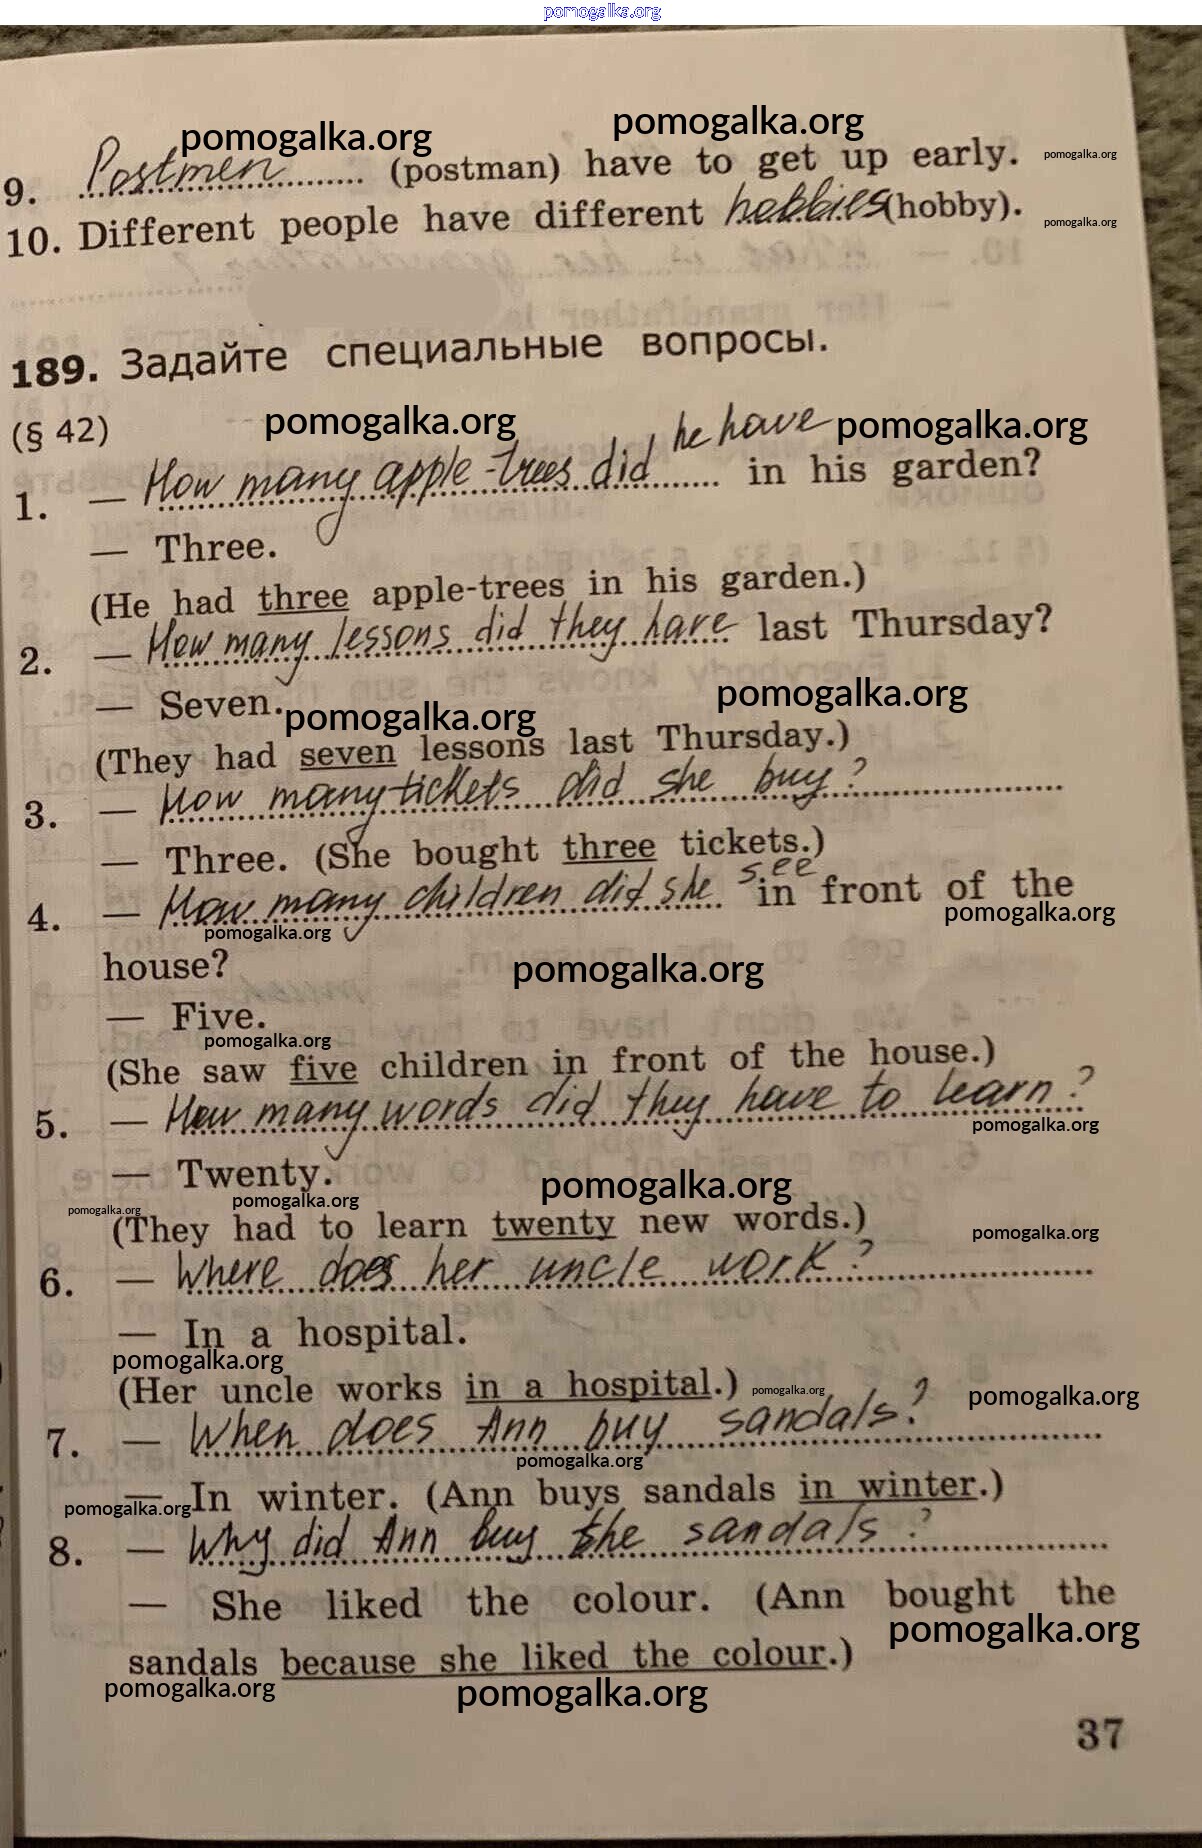 pomogalka.org
pomogalka.org pomogalka.org
9. Postmen (postman) have to get up early. pomogalka.org
10. Different people have different hobbies (hobby). pomogalka.org
189. Задайте специальные вопросы.
(§ 42) pomogalka.org he have pomogalka.org
1. — How many apple-trees did in his garden?
— Three.
(He had three apple-trees in his garden.)
2. — How many lessons did they have last Thursday?
— Seven. pomogalka.org pomogalka.org
(They had seven lessons last Thursday.)
3. — How many tickets did she buy?
— Three. (She bought three tickets.)
4. — How many children did she see in front of the
pomogalka.org pomogalka.org
house? pomogalka.org
— Five.
pomogalka.org
(She saw five children in front of the house.)
5. — How many words did they have to learn?
pomogalka.org
— Twenty. pomogalka.org
pomogalka.org pomogalka.org
(They had to learn twenty new words.) pomogalka.org
6. — Where does her uncle work?
— In a hospital.
pomogalka.org
(Her uncle works in a hospital.) pomogalka.org pomogalka.org
7. — When does Ann buy sandals?
pomogalka.org
— In winter. (Ann buys sandals in winter.)
pomogalka.org
8. — Why did Ann buy the sandals?
— She liked the colour. (Ann bought the
pomogalka.org
sandals because she liked the colour.)
pomogalka.org pomogalka.org
37